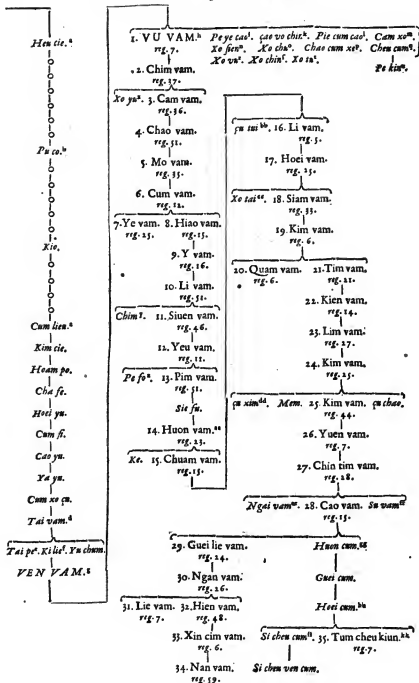 Heu cie.ª
Pu co.ᵇ
Kio.
Cum lieu.ᶜ
Kim cie.
Hoam po.
Cha fe.
Hoei yu.
Cum fi.
Cao yu.
Ya yu.
Cum xo çu.
Tai vam.ᵈ
Tai peᵉ. Ki lieᶠ. Yu chum.
VEN VAM.ᵍ
1. VU VAM.ʰ Pe ye caoⁱ. çao vo chiz.ᵏ Pie cum caoˡ. Cam xoᵐ.
reg. 7. Xo fienⁿ. Xo chuᵒ. Chao cum xeᵖ. Cheu cum
Xo vu. Xo chin. Xo tu. Pe kin
2. Chim vam.
reg. 37.
Xo yu. 3. Cam vam.
reg. 36.
4. Chao vam.
reg. 51.
5. Mo vam.
reg. 35.
6. Cum vam.
reg. 12.
7. Ye vam. 8. Hiao vam.
reg. 25. reg. 15.
9. Y vam.
reg. 16.
10. Li vam.
reg. 51.
Chim. 11. Siuen vam.
reg. 46.
12. Yeu vam.
reg. 11.
Pe fo. 13. Pim vam.
reg. 51.
Sie fu.
14. Huon vam.ªª
reg. 23.
Ke. 15. Chuam vam.
reg. 15.
çu tui ᵇᵇ. 16. Li vam.
reg. 5.
17. Hoei vam.
reg. 25.
Xo tai ᶜᶜ. 18. Siam vam.
reg. 33.
19. Kim vam.
reg. 6.
20. Quam vam. 21. Tim vam.
reg. 6. reg. 21.
22. Kien vam.
reg. 14.
23. Lim vam.
reg. 27.
24. Kim vam.
reg. 25.
çu xim ᵈᵈ. Mem. 25. Kim vam. çu chao.
reg. 44.
26. Yuen vam.
reg. 7.
27. Chin tim vam.
reg. 28.
Ngai vam ᵉᵉ. 28. Cao vam. Su vam ᶠᶠ
reg. 15.
29. Guei lie vam. Huon cum.ᵍᵍ
reg. 24.
30. Ngan vam. Guei cum.
reg. 26.
31. Lie vam. 32. Hien vam. Hoei cum.ʰʰ
reg. 7. reg. 48.
33. Xin cim vam. Si cheu cum. 35. Tum cheu kiun.ᵏᵏ
reg. 6. reg. 7.
34. Nan vam. Si cheu ven cum.
reg. 59.